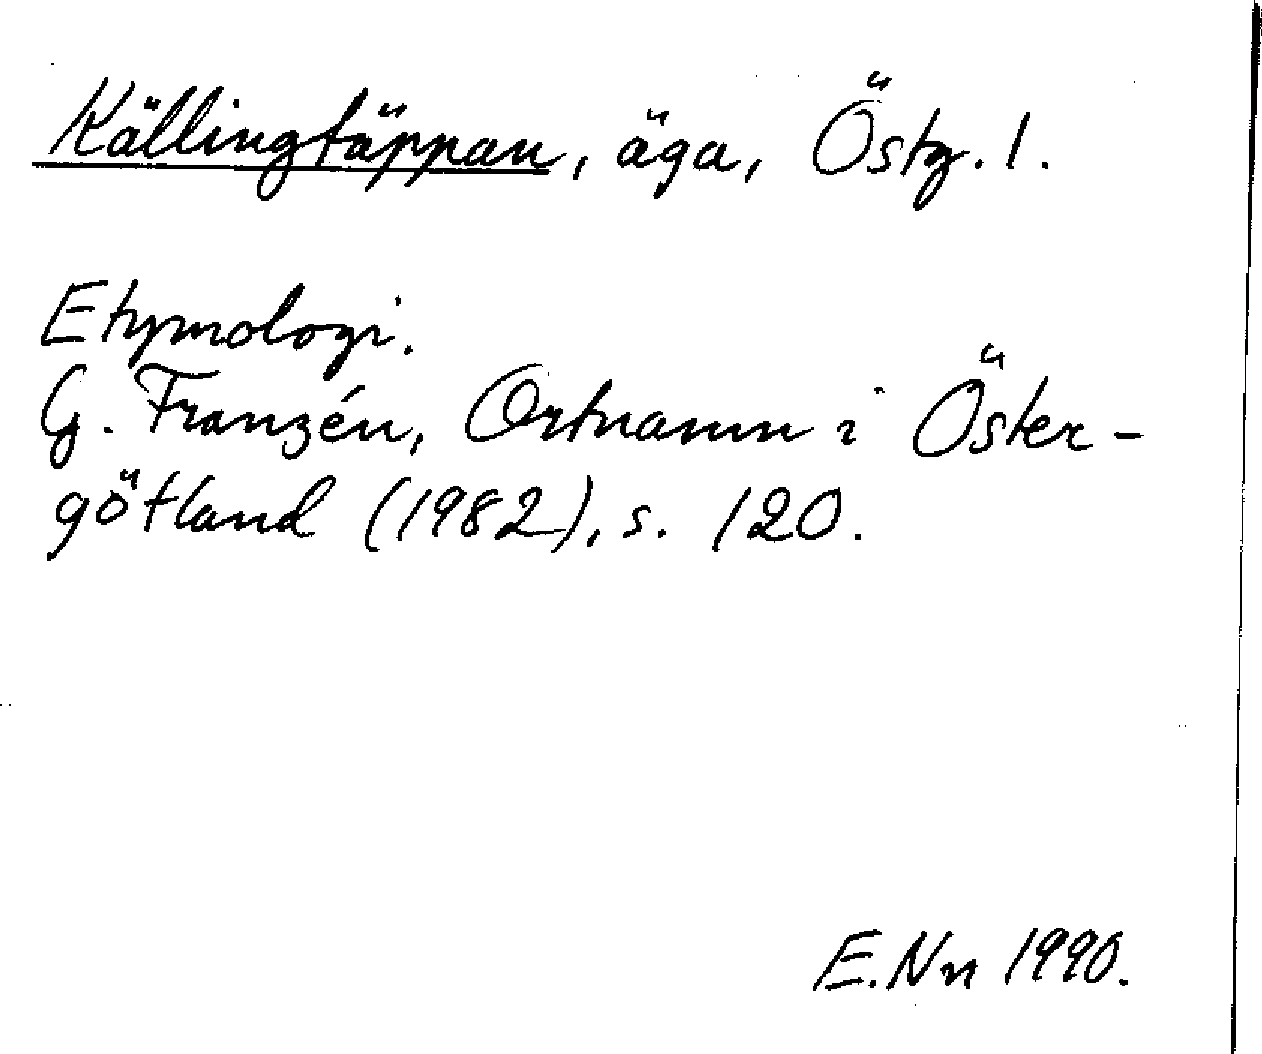 Källingtäppan, äga, Östg. l.
Etymologi.
G. Franzén, Ortnamn i Öster-
götland (1982), s. 120.
E. Nn 1990.